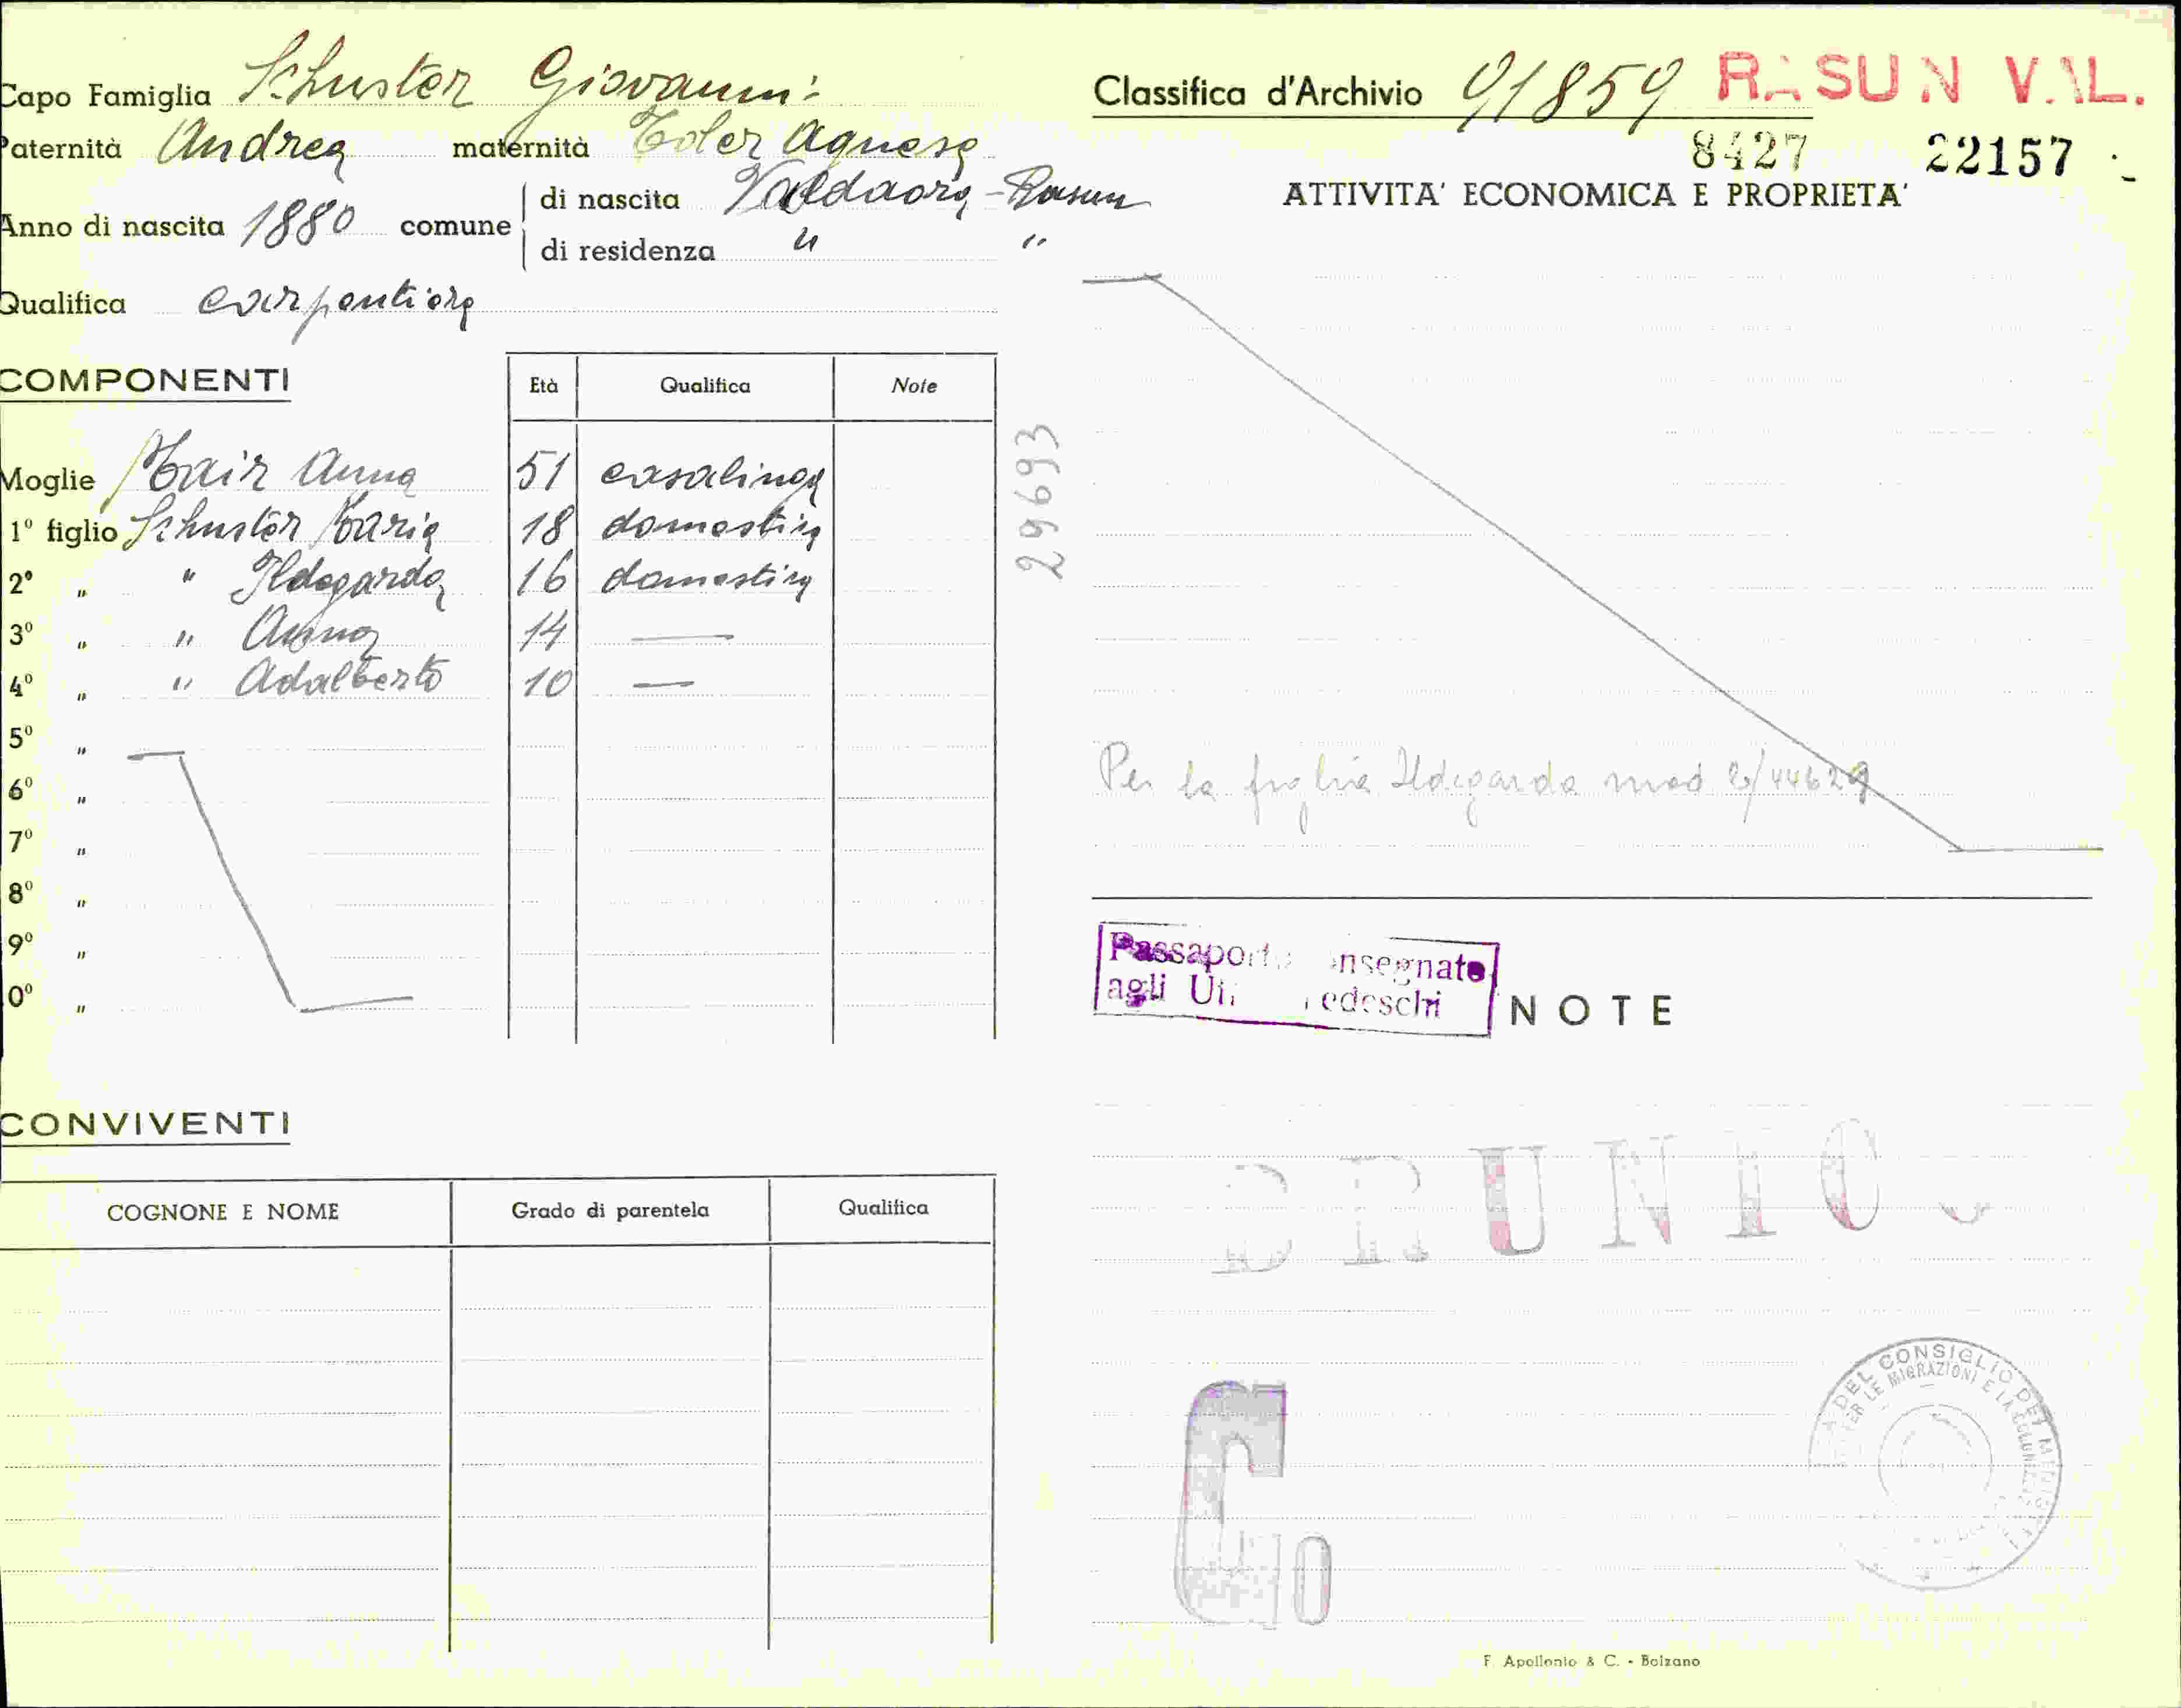 Capo Famiglia Schuster Giovanni
Paternità Andrea maternità Toler Agnese
Anno di nascita 1880 comune di nascita Valdaora - Rasun
di residenza " "
Qualifica carpentiere
COMPONENTI
Età Qualifica Note
Moglie Mair Anna 51 casalinga
1° figlio Schuster Maria 18 domestica
2° " " Ildegarda 16 domestica
3° " " Anna 14 —
4° " " Adalberto 10 —
5° "
6° "
7° "
8° "
9° "
0° "
29693
CONVIVENTI
COGNONE E NOME Grado di parentela Qualifica
Classifica d'Archivio 91859 RASUN VAL.
8427 22157
ATTIVITA' ECONOMICA E PROPRIETA'
Per la figlia Ildegarda mod 2/44629
Passaporto consegnato
agli Uffici Tedeschi
NOTE
BRUNICO
G10
DEL CONSIGLIO DEI MINISTRI
PER LE MIGRAZIONI E LA COLONIZZ
F. Apollonio & C. - Bolzano